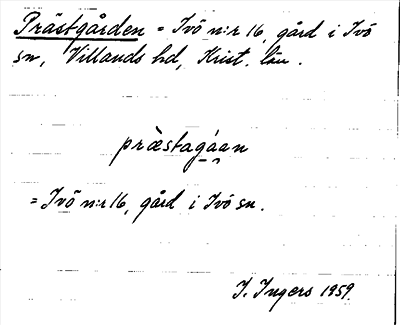 Prästgården = Ivö n:r 16, gård i Ivö
sn, Villands hd, Krist. län.
præ̀stagáan
= Ivö n:r 16, gård i Ivö sn.
I. Ingers 1959.